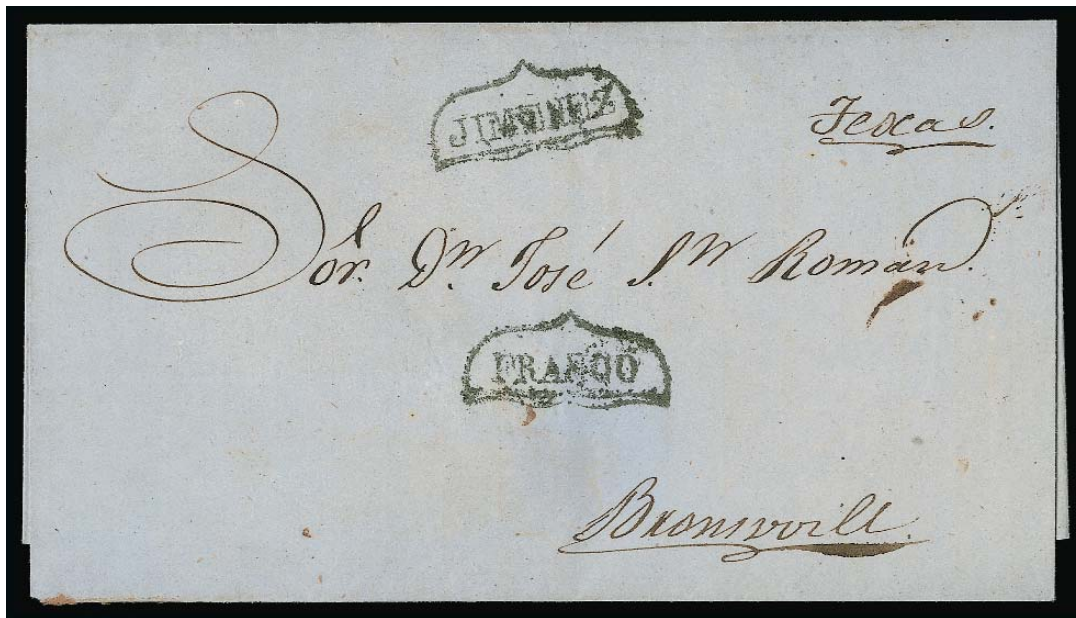 JIMENEZ
Texas.
Sor. Dn. José Sn Román.
FRANCO
Bronsvvill.